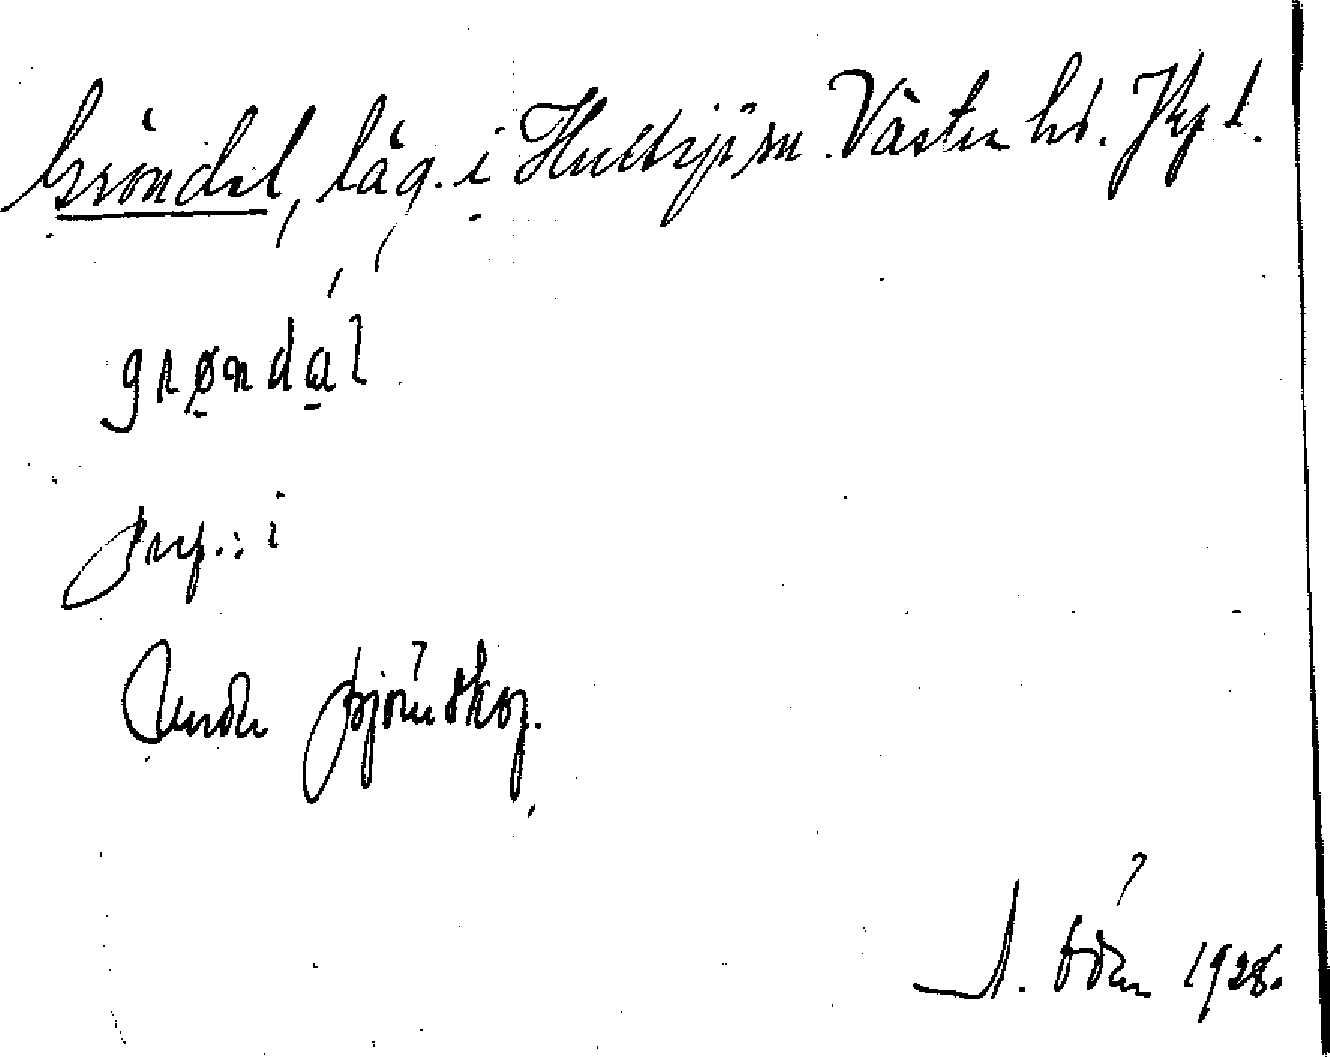 Gröndal, läg. i Hultsjö sn Västra hd. Jkp l.
grøndál
prep.: i
Under Björnskog.
1928.